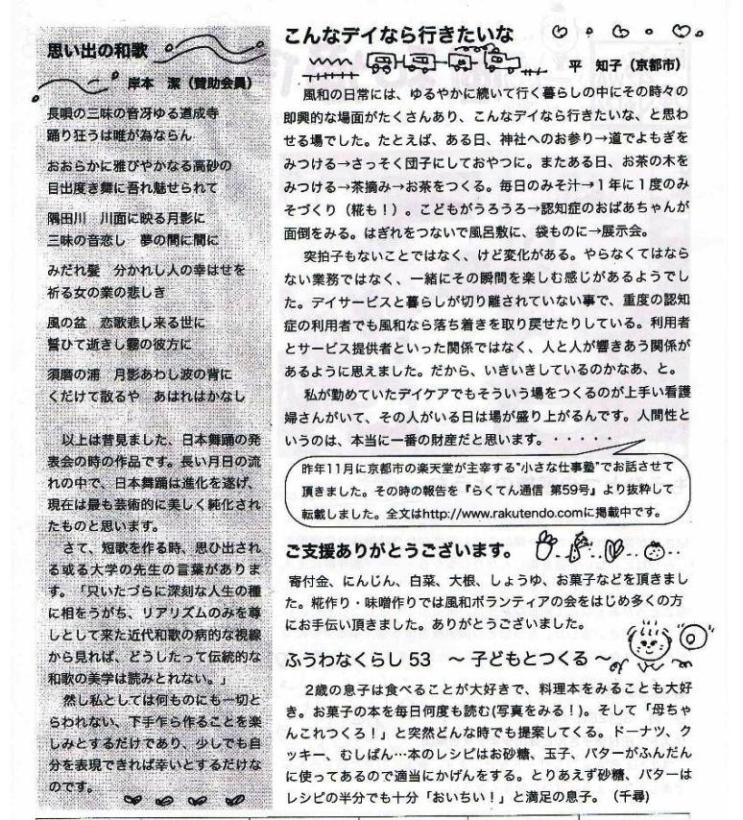 思い出の和歌
岸本 潔（賛助会員）
長唄の三味の音冴ゆる道成寺
踊り狂うは唯が為ならん
おおらかに雅びやかなる高砂の
目出度き舞に吾れ魅せられて
隅田川 川面に映る月影に
三味の音恋し 夢の間に間に
みだれ髪 分かれし人の幸はせを
祈る女の業の悲しき
風の盆 恋歌悲し来る世に
誓ひて逝きし霧の彼方に
須磨の浦 月影あわし波の背に
くだけて散るや あはれはかなし
以上は昔見ました、日本舞踊の発
表会の時の作品です。長い月日の流
れの中で、日本舞踊は進化を遂げ、
現在は最も芸術的に美しく純化され
たものと思います。
さて、短歌を作る時、思ひ出され
る或る大学の先生の言葉がありま
す。「只いたづらに深刻な人生の種
に相をうがち、リアリズムのみを尊
しとして来た近代和歌の病的な視線
から見れば、どうしたって伝統的な
和歌の美学は読みとれない。」
然し私としては何ものにも一切と
らわれない、下手乍ら作ることを楽
しみとするだけであり、少しでも自
分を表現できれば幸いとするだけな
のです。
こんなデイなら行きたいな
平 知子（京都市）
風和の日常には、ゆるやかに続いて行く暮らしの中にその時々の
即興的な場面がたくさんあり、こんなデイなら行きたいな、と思わ
せる場でした。たとえば、ある日、神社へのお参り→道でよもぎを
みつける→さっそく団子にしておやつに。またある日、お茶の木を
みつける→茶摘み→お茶をつくる。毎日のみそ汁→１年に１度のみ
そづくり（糀も！）。こどもがうろうろ→認知症のおばあちゃんが
面倒をみる。はぎれをつないで風呂敷に、袋ものに→展示会。
突拍子もないことではなく、けど変化がある。やらなくてはなら
ない業務ではなく、一緒にその瞬間を楽しむ感じがあるようでし
た。デイサービスと暮らしが切り離されていない事で、重度の認知
症の利用者でも風和なら落ち着きを取り戻せたりしている。利用者
とサービス提供者といった関係ではなく、人と人が響きあう関係が
あるように思えました。だから、いきいきしているのかなあ、と。
私が勤めていたデイケアでもそういう場をつくるのが上手い看護
婦さんがいて、その人がいる日は場が盛り上がるんです。人間性と
いうのは、本当に一番の財産だと思います。・・・・・
昨年11月に京都市の楽天堂が主宰する"小さな仕事塾"でお話させて
頂きました。その時の報告を『らくてん通信 第59号』より抜粋して
転載しました。全文はhttp://www.rakutendo.comに掲載中です。
ご支援ありがとうございます。
寄付金、にんじん、白菜、大根、しょうゆ、お菓子などを頂きまし
た。糀作り・味噌作りでは風和ボランティアの会をはじめ多くの方
にお手伝い頂きました。ありがとうございました。
ふうわなくらし 53 ～ 子どもとつくる ～
２歳の息子は食べることが大好きで、料理本をみることも大好
き。お菓子の本を毎日何度も読む(写真をみる！)。そして「母ちゃ
んこれつくろ！」と突然どんな時でも提案してくる。ドーナツ、ク
ッキー、むしぱん…本のレシピはお砂糖、玉子、バターがふんだん
に使ってあるので適当にかげんをする。とりあえず砂糖、バターは
レシピの半分でも十分「おいちい！」と満足の息子。（千尋）